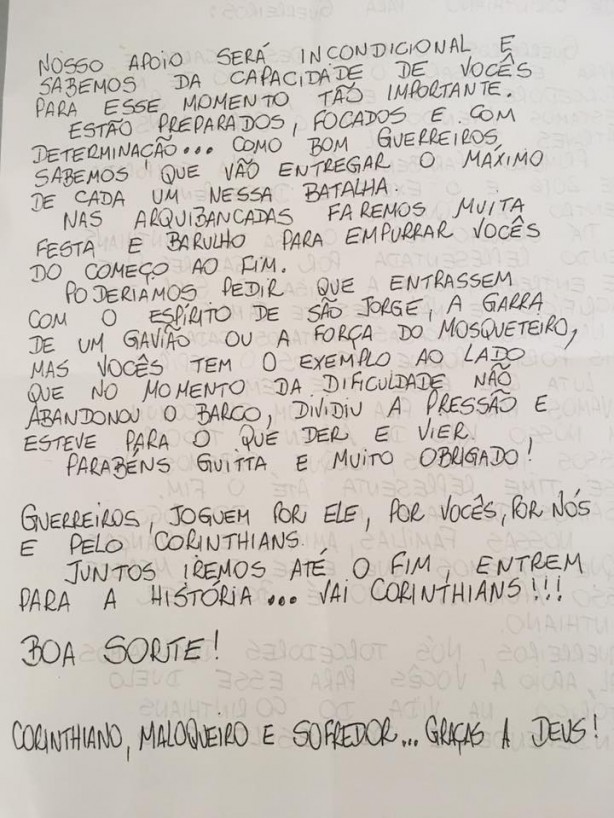 NOSSO APOIO SERÁ INCONDICIONAL E
SABEMOS DA CAPACIDADE DE VOCÊS
PARA ESSE MOMENTO TÃO IMPORTANTE.
ESTÃO PREPARADOS, FOCADOS E COM
DETERMINAÇÃO... COMO BOM GUERREIROS
SABEMOS QUE VÃO ENTREGAR O MÁXIMO
DE CADA UM NESSA BATALHA.
NAS ARQUIBANCADAS FAREMOS MUITA
FESTA E BARULHO PARA EMPURRAR VOCÊS
DO COMEÇO AO FIM.
PODERIAMOS PEDIR QUE ENTRASSEM
COM O ESPÍRITO DE SÃO JORGE, A GARRA
DE UM GAVIÃO OU A FORÇA DO MOSQUETEIRO,
MAS VOCÊS TEM O EXEMPLO AO LADO
QUE NO MOMENTO DA DIFICULDADE NÃO
ABANDONOU O BARCO, DIVIDIU A PRESSÃO E
ESTEVE PARA O QUE DER E VIER.
PARABÉNS GUITTA E MUITO OBRIGADO!
GUERREIROS, JOGUEM POR ELE, POR VOCÊS, POR NÓS
E PELO CORINTHIANS.
JUNTOS IREMOS ATÉ O FIM, ENTREM
PARA A HISTÓRIA... VAI CORINTHIANS!!!
BOA SORTE!
CORINTHIANO, MALOQUEIRO E SOFREDOR... GRAÇAS A DEUS!